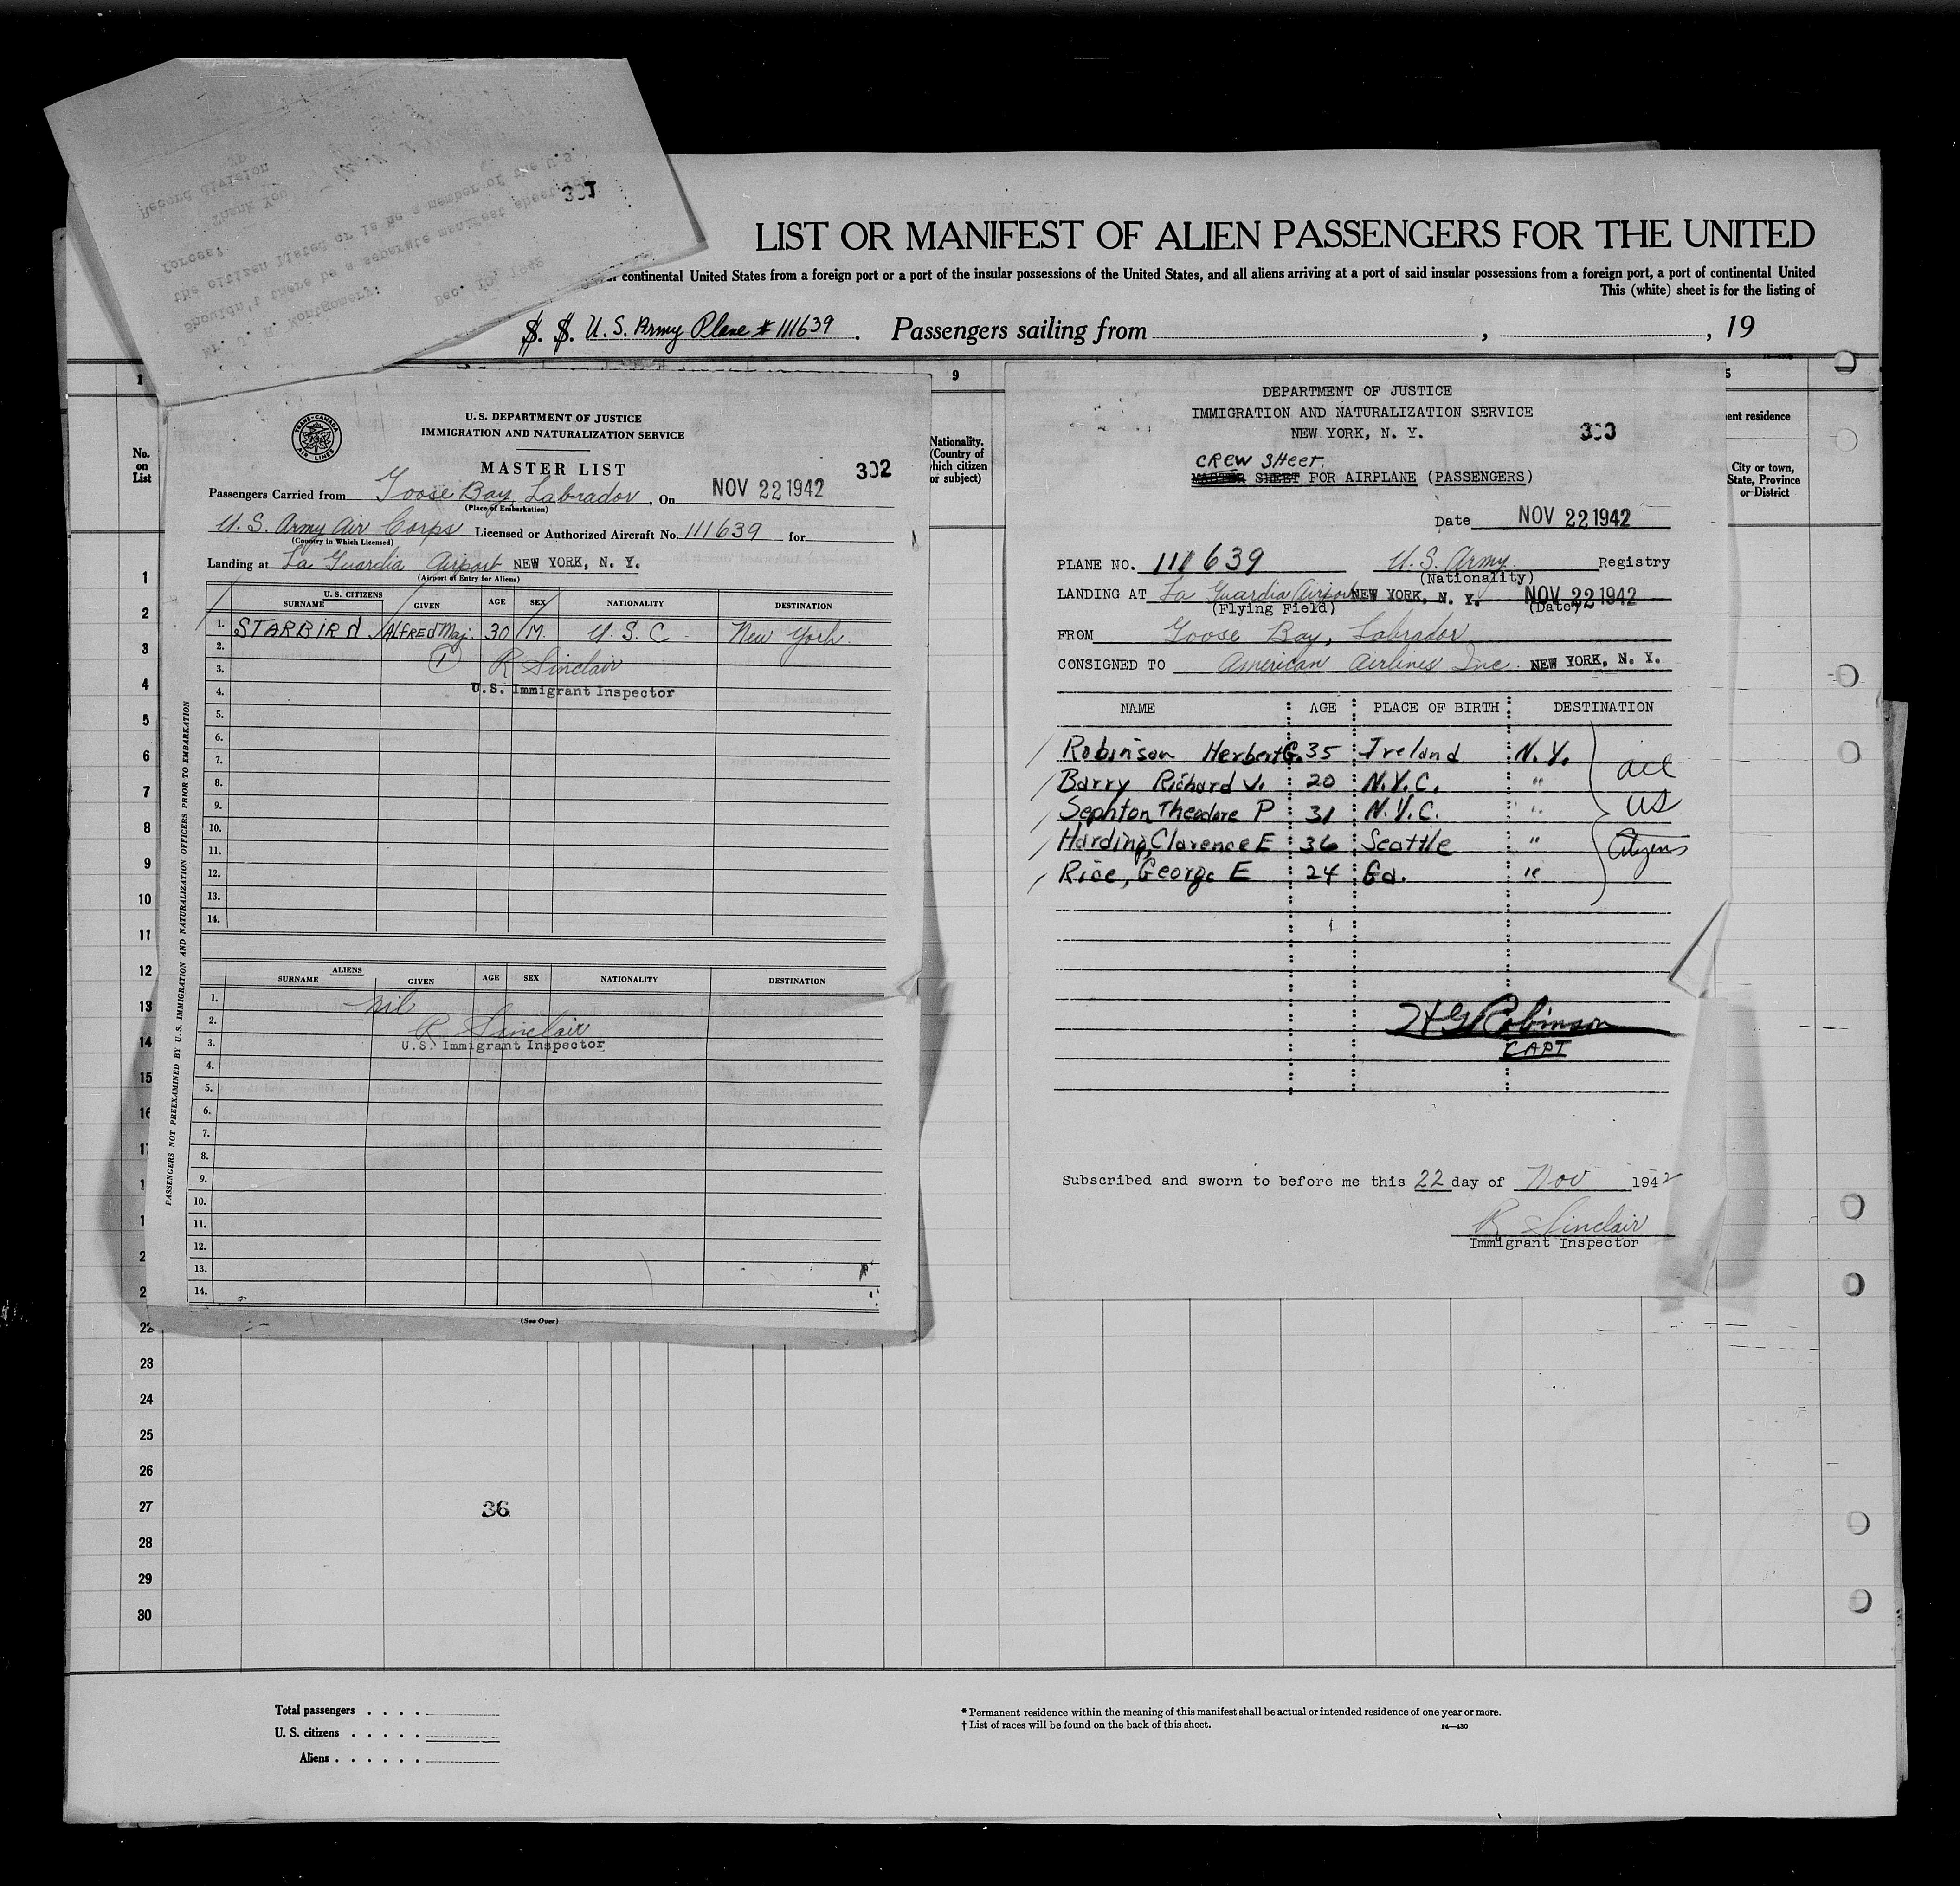 Mr. J. H. Montgomery:
Dec. 10, 1942
Shouldn't there be a separate manifest sheet for
the citizen listed or is he a member of the U.S.
forces?
Thank You
Record division
301
LIST OR MANIFEST OF ALIEN PASSENGERS FOR THE UNITED
continental United States from a foreign port or a port of the insular possessions of the United States, and all aliens arriving at a port of said insular possessions from a foreign port, a port of continental United
This (white) sheet is for the listing of
S. S. U. S. Army Plane # 111639. Passengers sailing from , , 19
No. on List
9
Nationality. (Country of which citizen or subject)
5
ent residence
City or town, State, Province or District
TRANS-CANADA AIR LINES
U. S. DEPARTMENT OF JUSTICE
IMMIGRATION AND NATURALIZATION SERVICE
MASTER LIST
302
Passengers Carried from Goose Bay, Labrador, On NOV 22 1942
(Place of Embarkation)
U. S. Army Air Corps Licensed or Authorized Aircraft No. 111639 for
(Country in Which Licensed)
Landing at La Guardia Airport NEW YORK, N. Y.
(Airport of Entry for Aliens)
U. S. CITIZENS
SURNAME GIVEN AGE SEX NATIONALITY DESTINATION
1. STARBIRd Alfred Maj. 30 M. U. S. C. New York.
2. 1 R Sinclair
3.
4. U.S. Immigrant Inspector
5.
6.
7.
8.
9.
10.
11.
12.
13.
14.
ALIENS
SURNAME GIVEN AGE SEX NATIONALITY DESTINATION
1. nil
2. R Sinclair
3. U.S. Immigrant Inspector
4.
5.
6.
7.
8.
9.
10.
11.
12.
13.
14.
(See Over)
PASSENGERS NOT PREEXAMINED BY U. S. IMMIGRATION AND NATURALIZATION OFFICERS PRIOR TO EMBARKATION
DEPARTMENT OF JUSTICE
IMMIGRATION AND NATURALIZATION SERVICE
NEW YORK, N. Y.
303
CREW SHeet.
MASTER SHEET FOR AIRPLANE (PASSENGERS)
Date NOV 22 1942
PLANE NO. 111639 U. S. Army Registry
(Nationality)
LANDING AT La Guardia Airport NEW YORK, N. Y. NOV 22 1942
(Flying Field) (Date)
FROM Goose Bay, Labrador
CONSIGNED TO American Airlines Inc. NEW YORK, N. Y.
NAME AGE PLACE OF BIRTH DESTINATION
Robinson Herbert G. 35 Ireland N. Y.
Barry Richard J. 20 N.Y.C. "
Sephton Theodore P 31 N.Y.C. "
Harding, Clarence E 36 Seattle "
Rice, George E 24 Ga. "
all
US
Citizens
H G Robinson
CAPT
Subscribed and sworn to before me this 22 day of Nov 1942
R Sinclair
Immigrant Inspector
1
2
3
4
5
6
7
8
9
10
11
12
13
14
15
16
22
23
24
25
26
27
36
28
29
30
Total passengers . . . .
U. S. citizens . . . . .
Aliens . . . . . .
* Permanent residence within the meaning of this manifest shall be actual or intended residence of one year or more.
† List of races will be found on the back of this sheet.
14—430